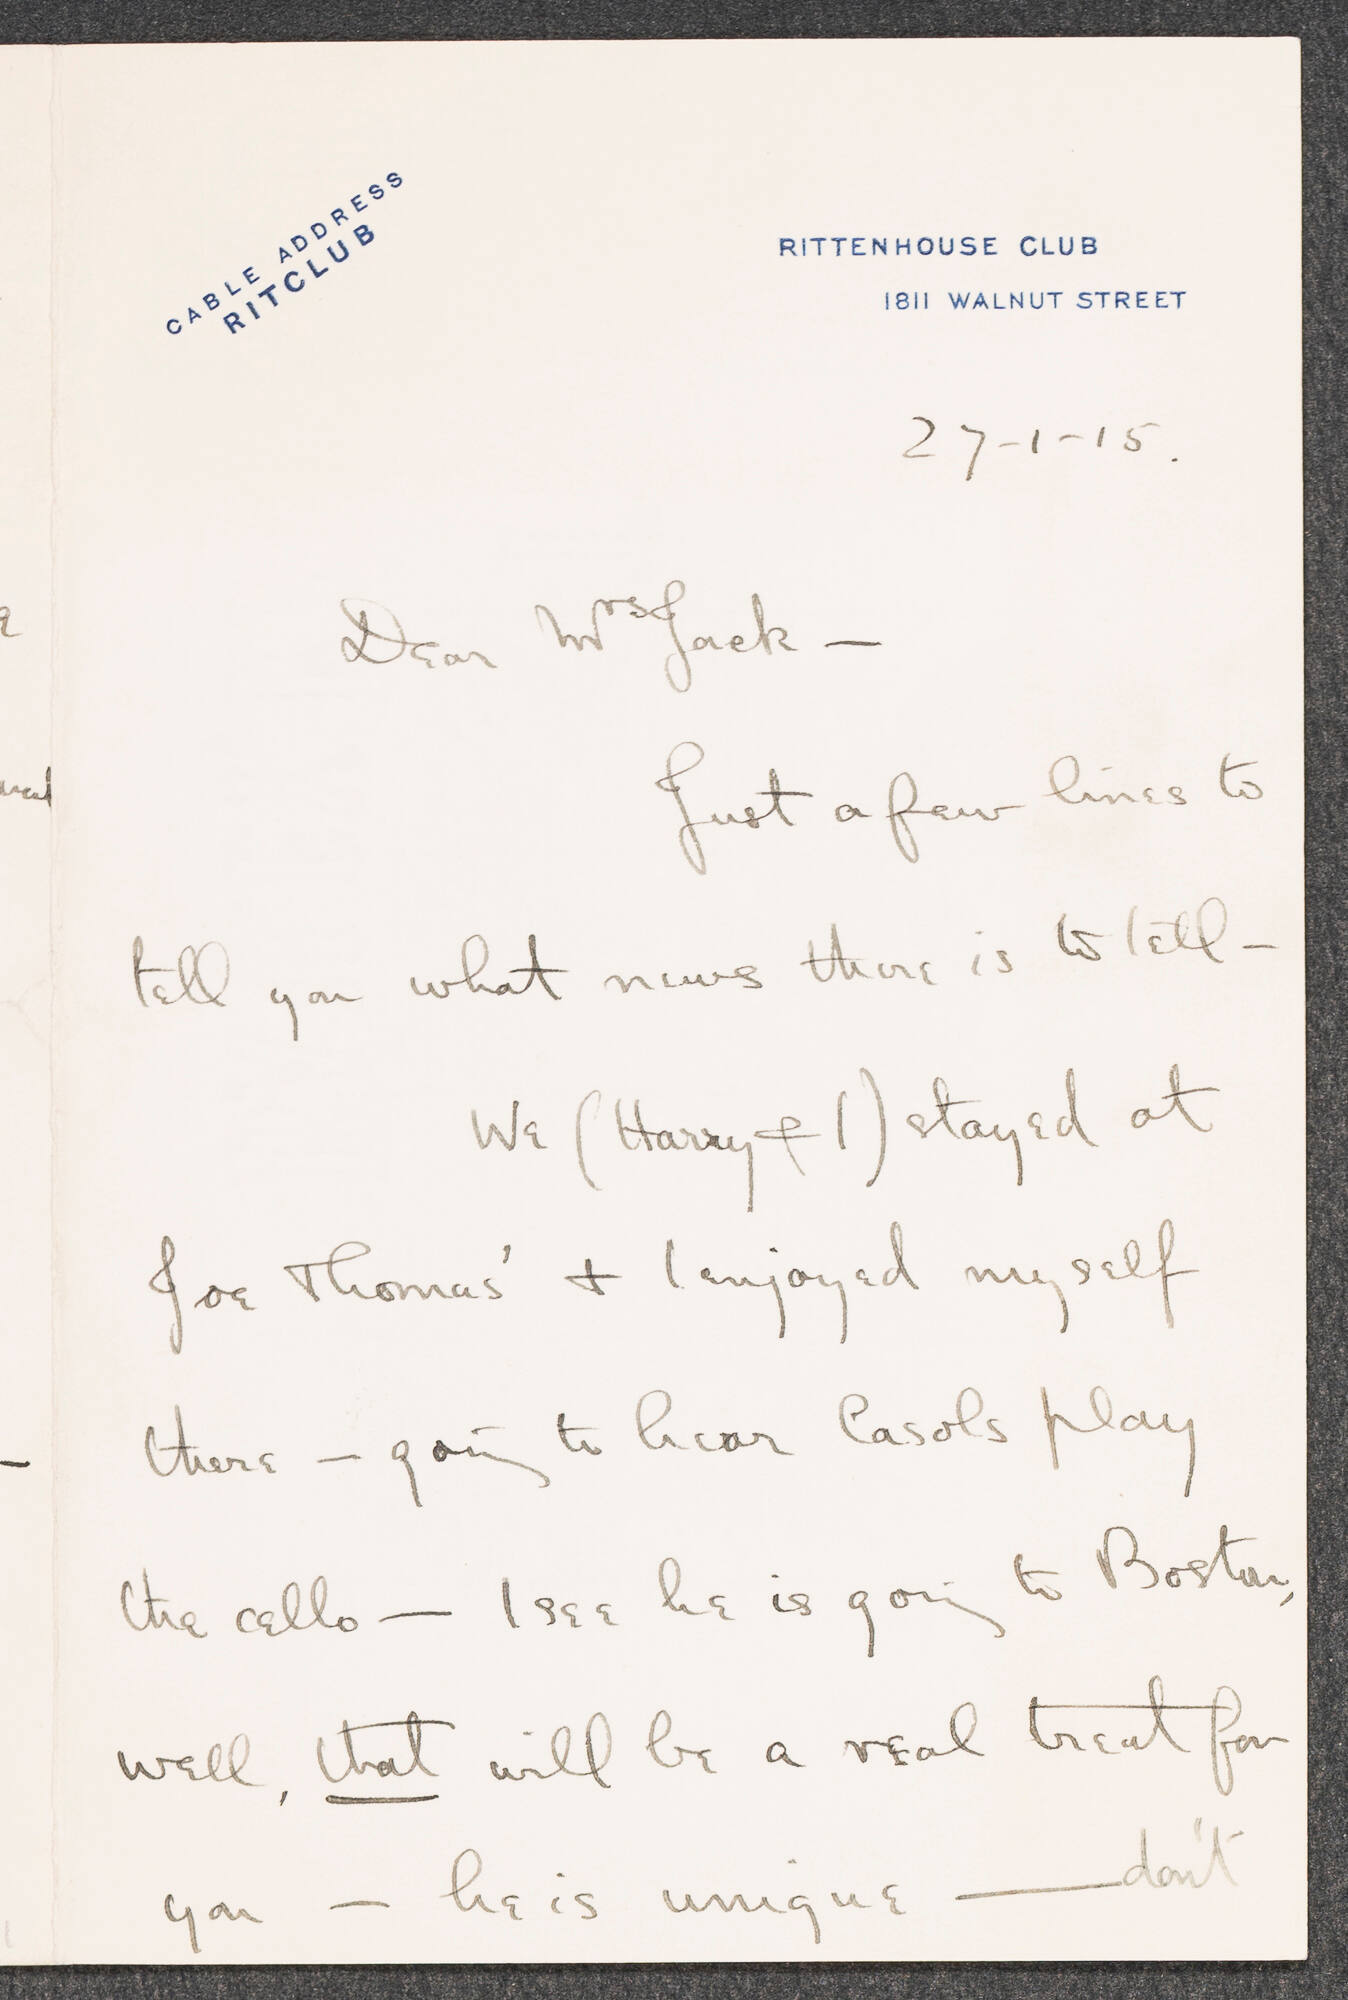 CABLE ADDRESS
RITCLUB
RITTENHOUSE CLUB
1811 WALNUT STREET
27-1-15.
Dear Mrs Jack —
Just a few lines to
tell you what news there is to tell —
We (Harry & I) stayed at
Joe Thomas' + I enjoyed myself
there — going to hear Casols play
the cello — I see he is going to Boston,
well, that will be a real treat for
you — he is unique — don't